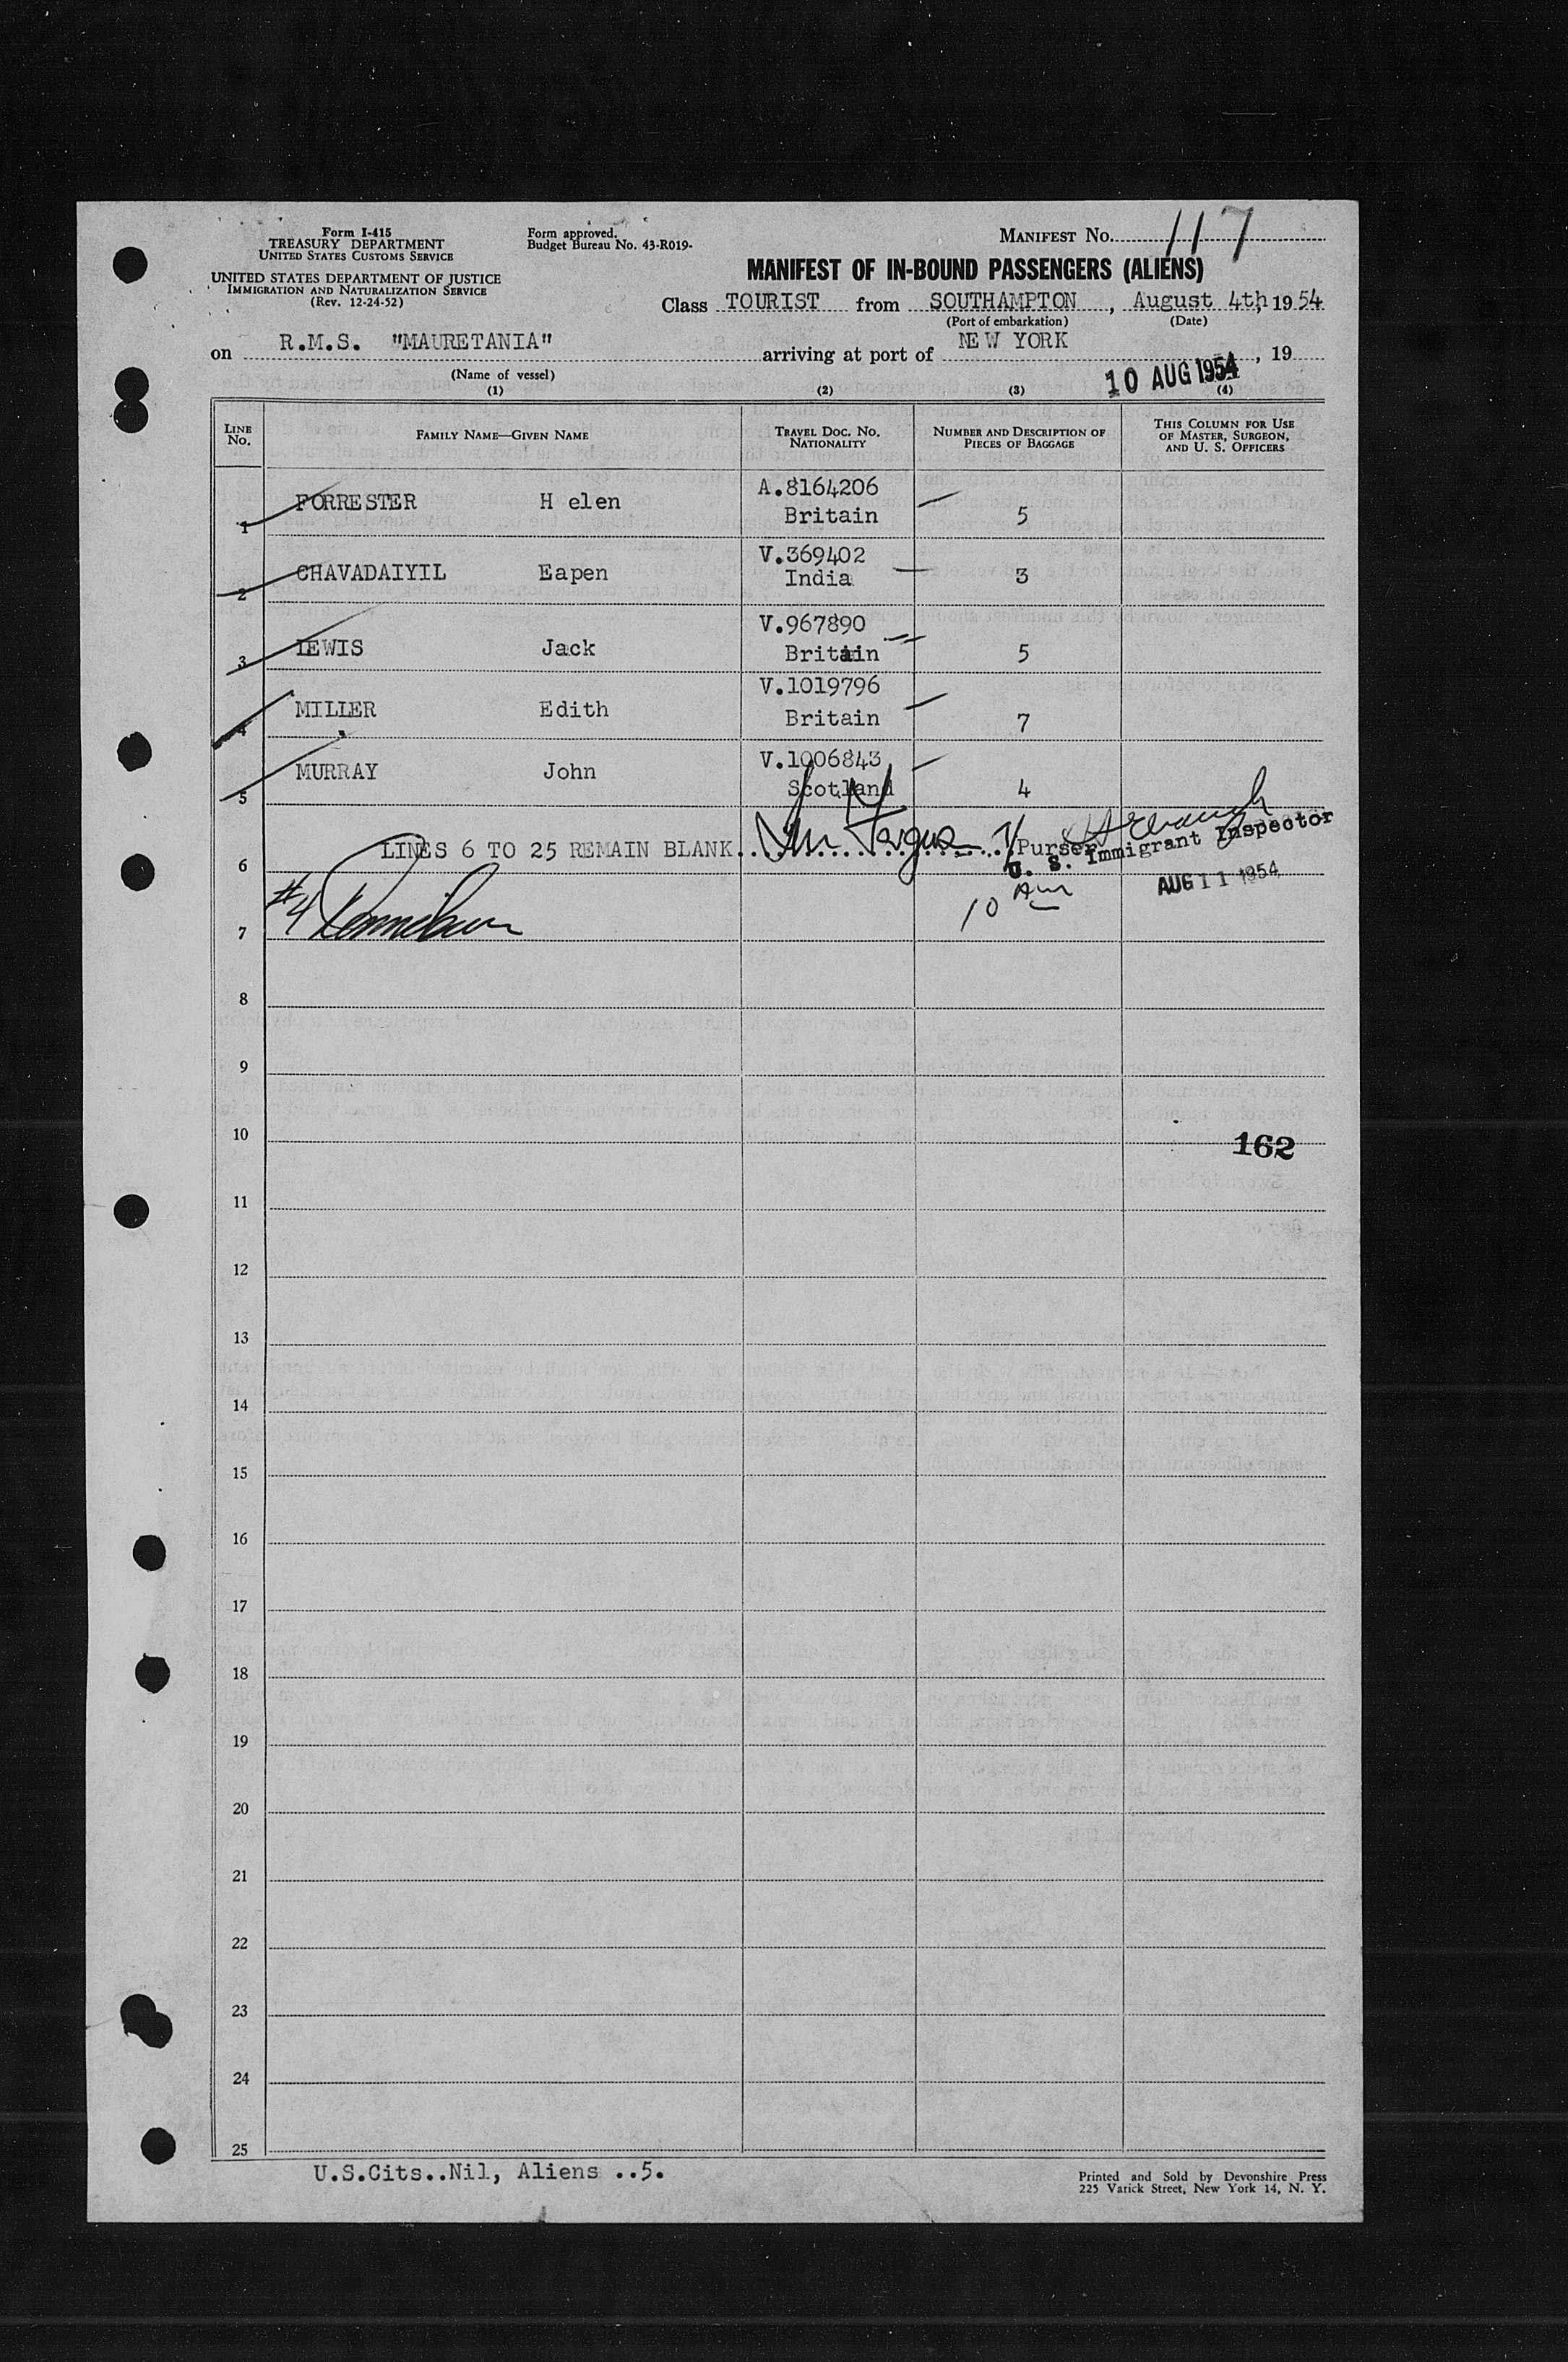 Form I-415
TREASURY DEPARTMENT
UNITED STATES CUSTOMS SERVICE
UNITED STATES DEPARTMENT OF JUSTICE
IMMIGRATION AND NATURALIZATION SERVICE
(Rev. 12-24-52)
Form approved.
Budget Bureau No. 43-R019-
MANIFEST NO. 117
MANIFEST OF IN-BOUND PASSENGERS (ALIENS)
Class TOURIST from SOUTHAMPTON, August 4th, 1954
(Port of embarkation) (Date)
on R.M.S. "MAURETANIA" arriving at port of NEW YORK, 19
(Name of vessel)
10 AUG 1954
(1) (2) (3) (4)
LINE NO. FAMILY NAME—GIVEN NAME TRAVEL DOC. NO. NATIONALITY NUMBER AND DESCRIPTION OF PIECES OF BAGGAGE THIS COLUMN FOR USE OF MASTER, SURGEON, AND U. S. OFFICERS
1 FORRESTER H elen A.8164206 Britain 5
2 CHAVADAIYIL Eapen V.369402 India 3
3 LEWIS Jack V.967890 Britain 5
4 MILLER Edith V.1019796 Britain 7
5 MURRAY John V.1006843 Scotland 4
6 LINES 6 TO 25 REMAIN BLANK. Purser
U. S. Immigrant Inspector
AUG 11 1954
#4
10 AM
7
8
9
10
162
11
12
13
14
15
16
17
18
19
20
21
22
23
24
25
U.S.Cits..Nil, Aliens ..5.
Printed and Sold by Devonshire Press
225 Varick Street, New York 14, N. Y.